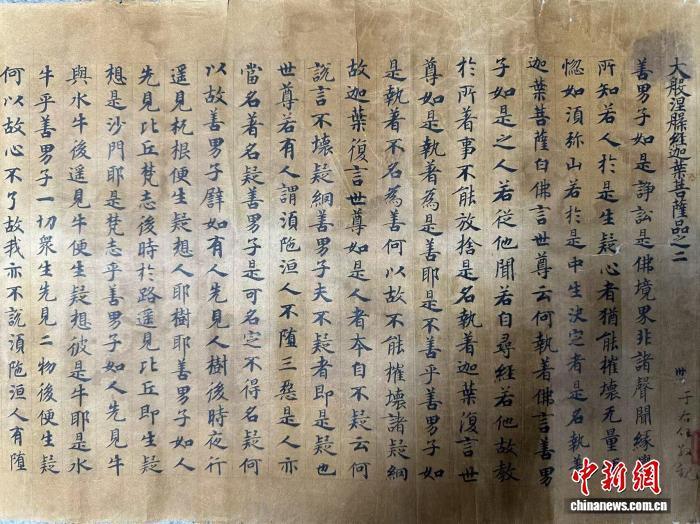 大般涅槃經迦葉菩薩品之二
卅
善男子如是諍訟是佛境界非諸聲聞緣覺
所知若人於是生疑心者猶能摧壞无量
惱如須弥山若於是中生決定者是名執
迦葉菩薩白佛言世尊云何執著佛言善男
子如是之人若從他聞若自尋經若他故教
於所著事不能放捨是名執着迦葉復言世
尊如是執著為是善耶是不善乎善男子如
是執著不名為善何以故不能摧壞諸疑網
故迦葉復言世尊如是人者本自不疑云何
説言不壞疑網善男子夫不疑者即是疑也
世尊若有人謂須陁洹人不墮三惡是人亦
當名著名疑善男子是可名定不得名疑何
以故善男子譬如有人先見人樹後時夜行
遥見杌根便生疑想人耶樹耶善男子如人
先見比丘梵志後時於路遥見比丘即生疑
想是沙門耶是梵志乎善男子如人先見牛
與水牛後遥見牛便生疑想彼是牛耶是水
牛乎善男子一切衆生先見二物後便生疑
何以故心不了故我亦不說須陁洹人有墮
中新网
chinanews.com.cn